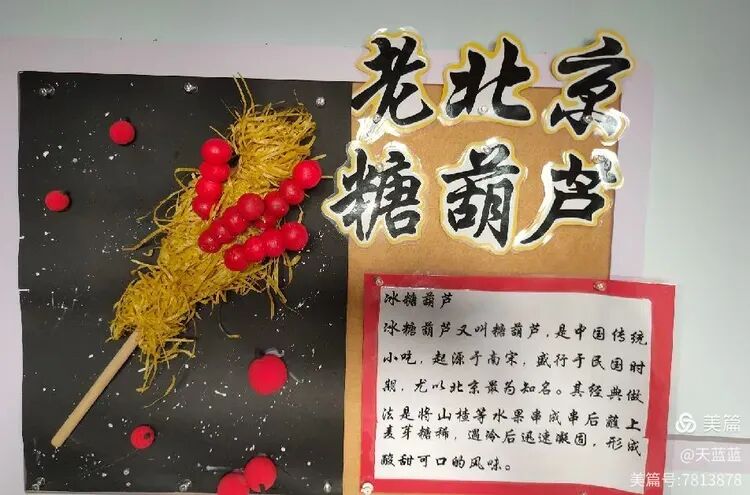 老北京
糖葫芦
冰糖葫芦
冰糖葫芦又叫糖葫芦，是中国传统
小吃，起源于南宋，盛行于民国时
期，尤以北京最为知名。其经典做
法是将山楂等水果串成串后蘸上
麦芽糖稀，遇冷后迅速凝固，形成
酸甜可口的风味。
美篇
@天蓝蓝
美篇号:7813878